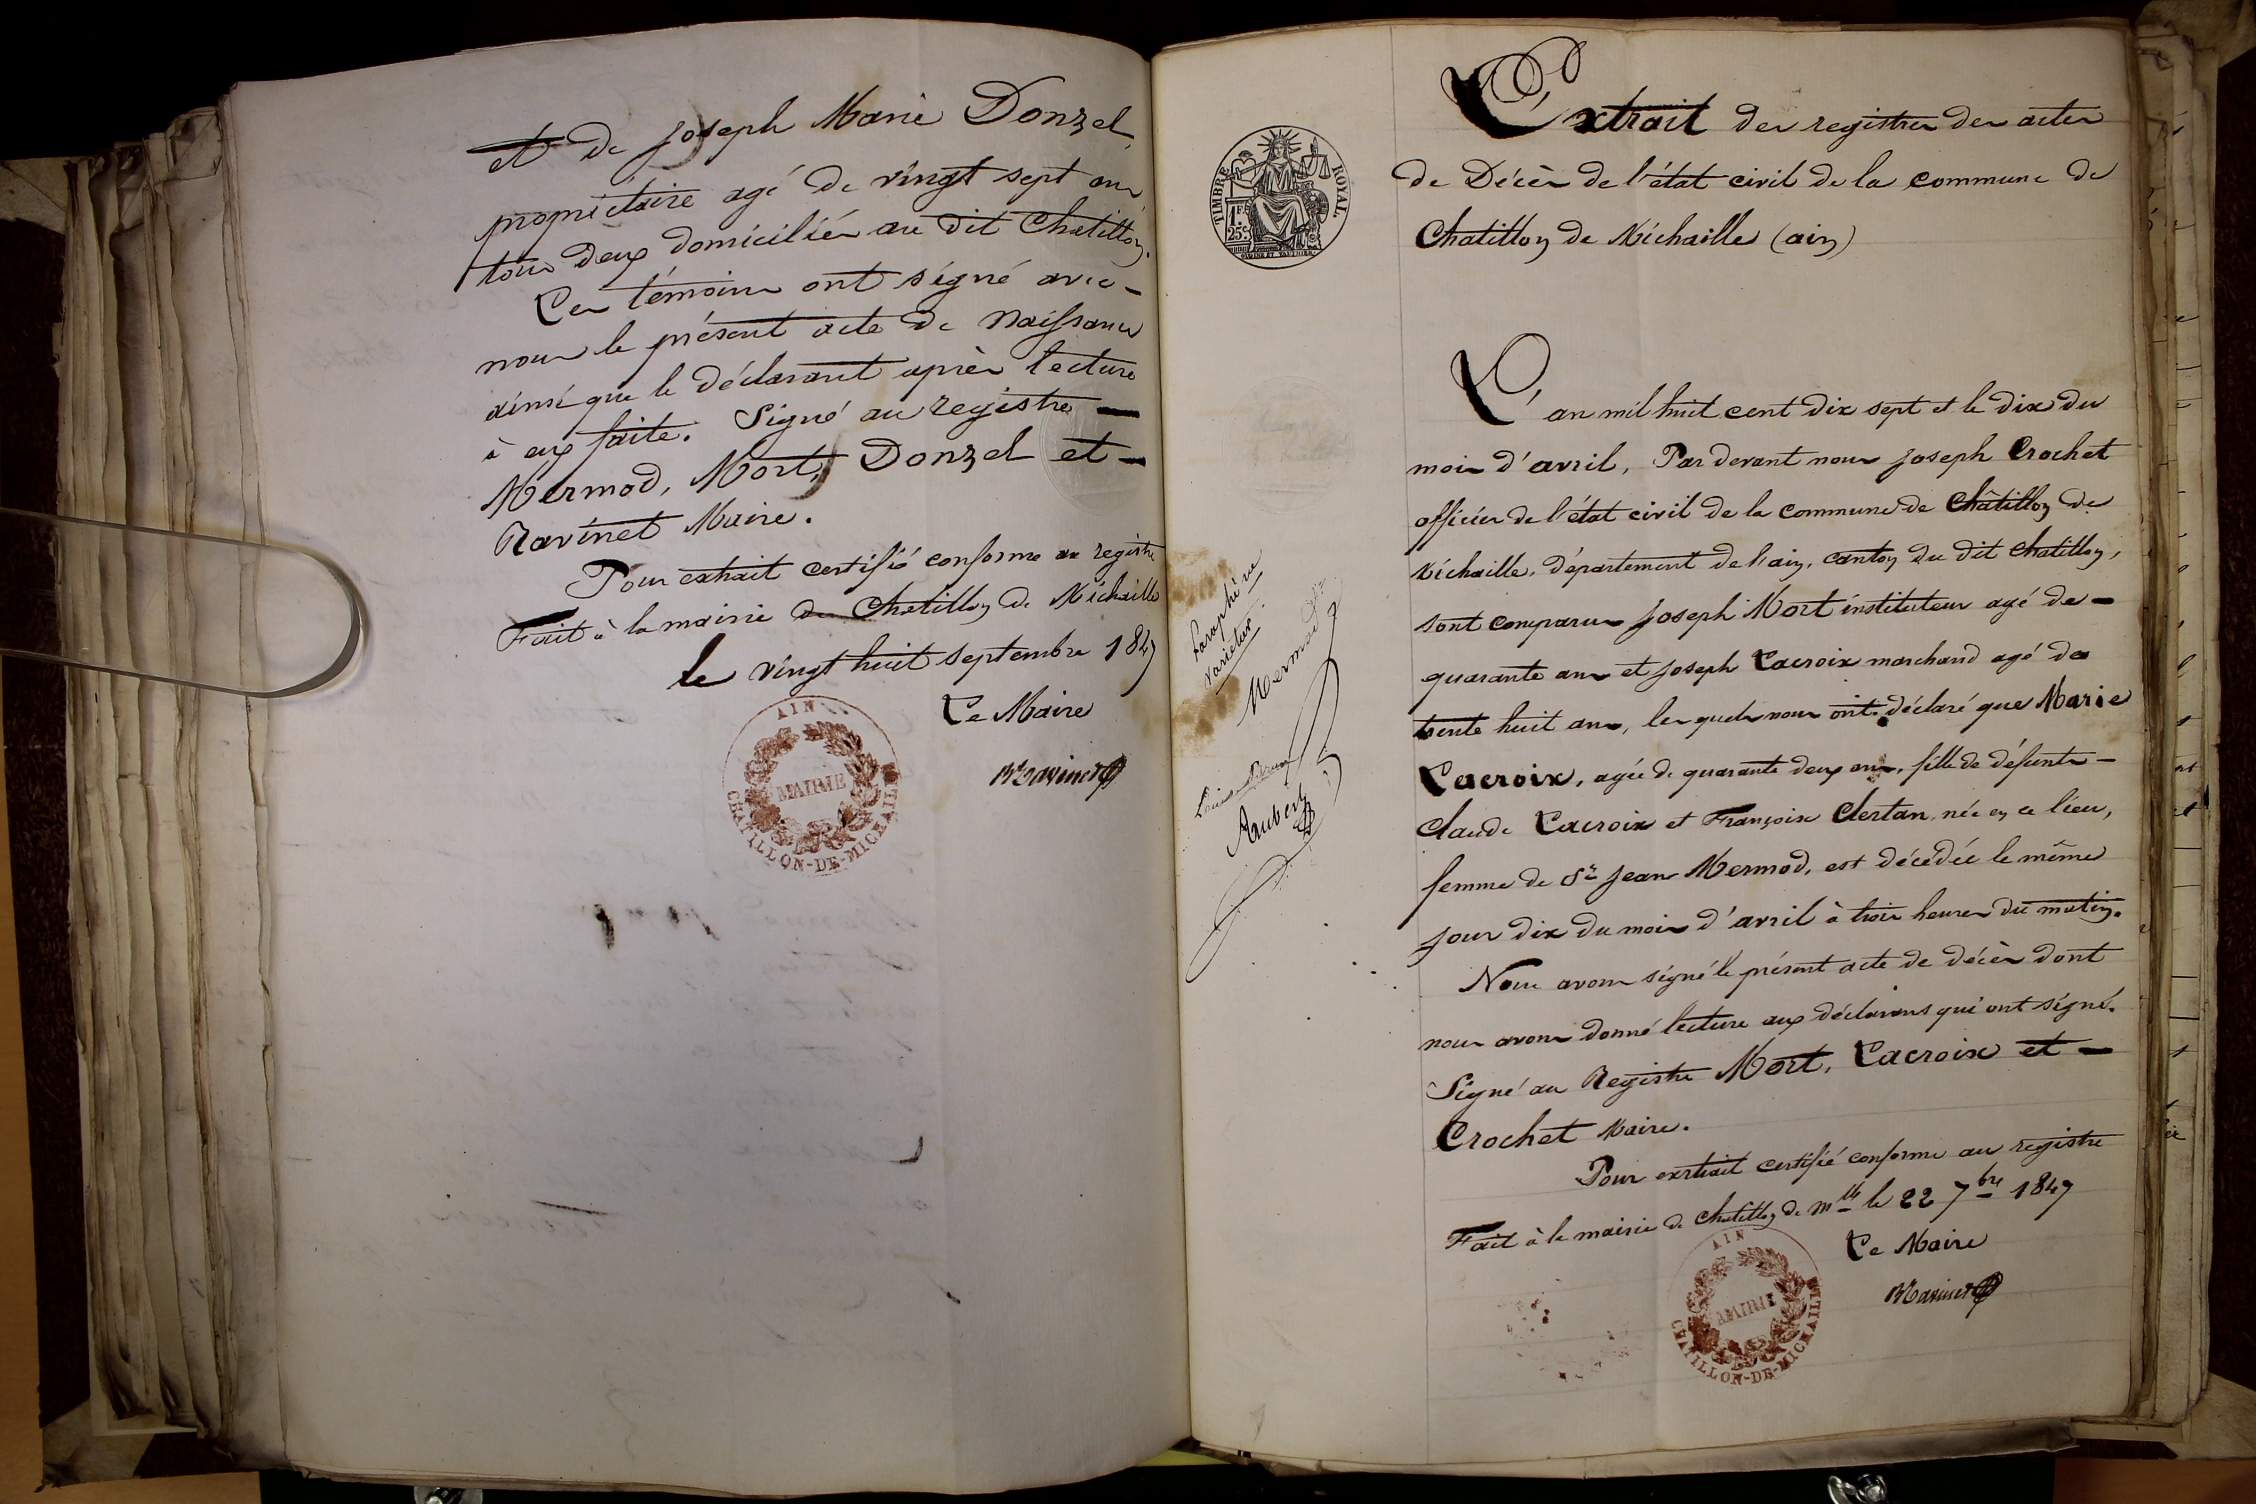 et de Joseph Marie Donzel,
propriétaire agé de vingt sept ans
tous deux domiciliés au dit Chatillon.
Les témoins ont signé avec -
nous le présent acte de Naissance
ainsi que le déclarant après lecture
à eux faite. Signé au registre -
Mermod, Mort, Donzel et -
Ravinet Maire.
Pour extrait certifié conforme au registre
Fait à la mairie de Chatillon de Michaille
le vingt huit septembre 1847
Le Maire
Ravinet
AIN
MAIRIE
CHATILLON-DE-MICHAILLE
TIMBRE ROYAL.
1 F.
25 c.
Paraphé ne
varietur
Mermod
Aubert
Extrait des registres des actes
de Décès de l'état civil de la commune de
Chatillon de Michaille (ain)
L'an mil huit cent dix sept et le dix du
mois d'avril, Par devant nous Joseph Crochet
officier de l'état civil de la commune de Châtillon de
Michaille, département de l'ain, canton du dit Chatillon,
sont comparus Joseph Mort instituteur agé de -
quarante ans et Joseph Lacroix marchand agé de
trente huit ans, les quels nous ont déclaré que Marie
Lacroix, agée de quarante deux ans, fille de défunts -
Claude Lacroix et Françoise Clertan, née en ce lieu,
femme de Sr Jean Mermod, est décédée le même
jour dix du mois d'avril à trois heures du matin.
Nous avons signé le présent acte de décès dont
nous avons donné lecture aux déclarans qui ont signé.
Signé au Registre Mort, Lacroix et -
Crochet Maire.
Pour extrait certifié conforme au registre
Fait à la mairie de Chatillon de Mlle le 22 7bre 1847
Le Maire
Ravinet
AIN
MAIRIE
CHATILLON-DE-MICHAILLE